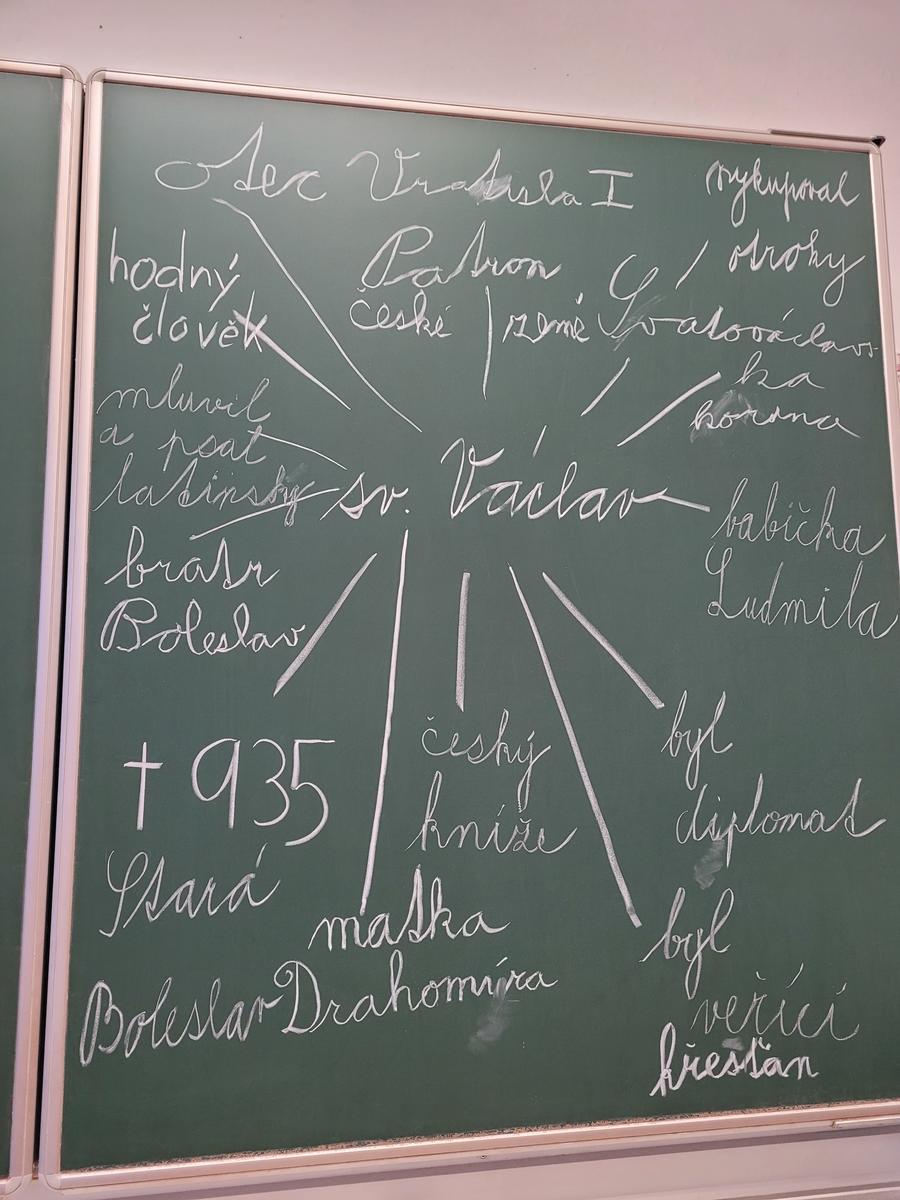 otec Vratisla I
vykupoval
otroky
hodný
člověk
Patron
české země
Svatováclavs-
ka
koruna
mluvil
a psal
latinsky
sv. Václav
babička
Ludmila
bratr
Boleslav
† 935
Stará
Boleslav
český
kníže
matka
Drahomíra
byl
diplomat
byl
věřící
křesťan